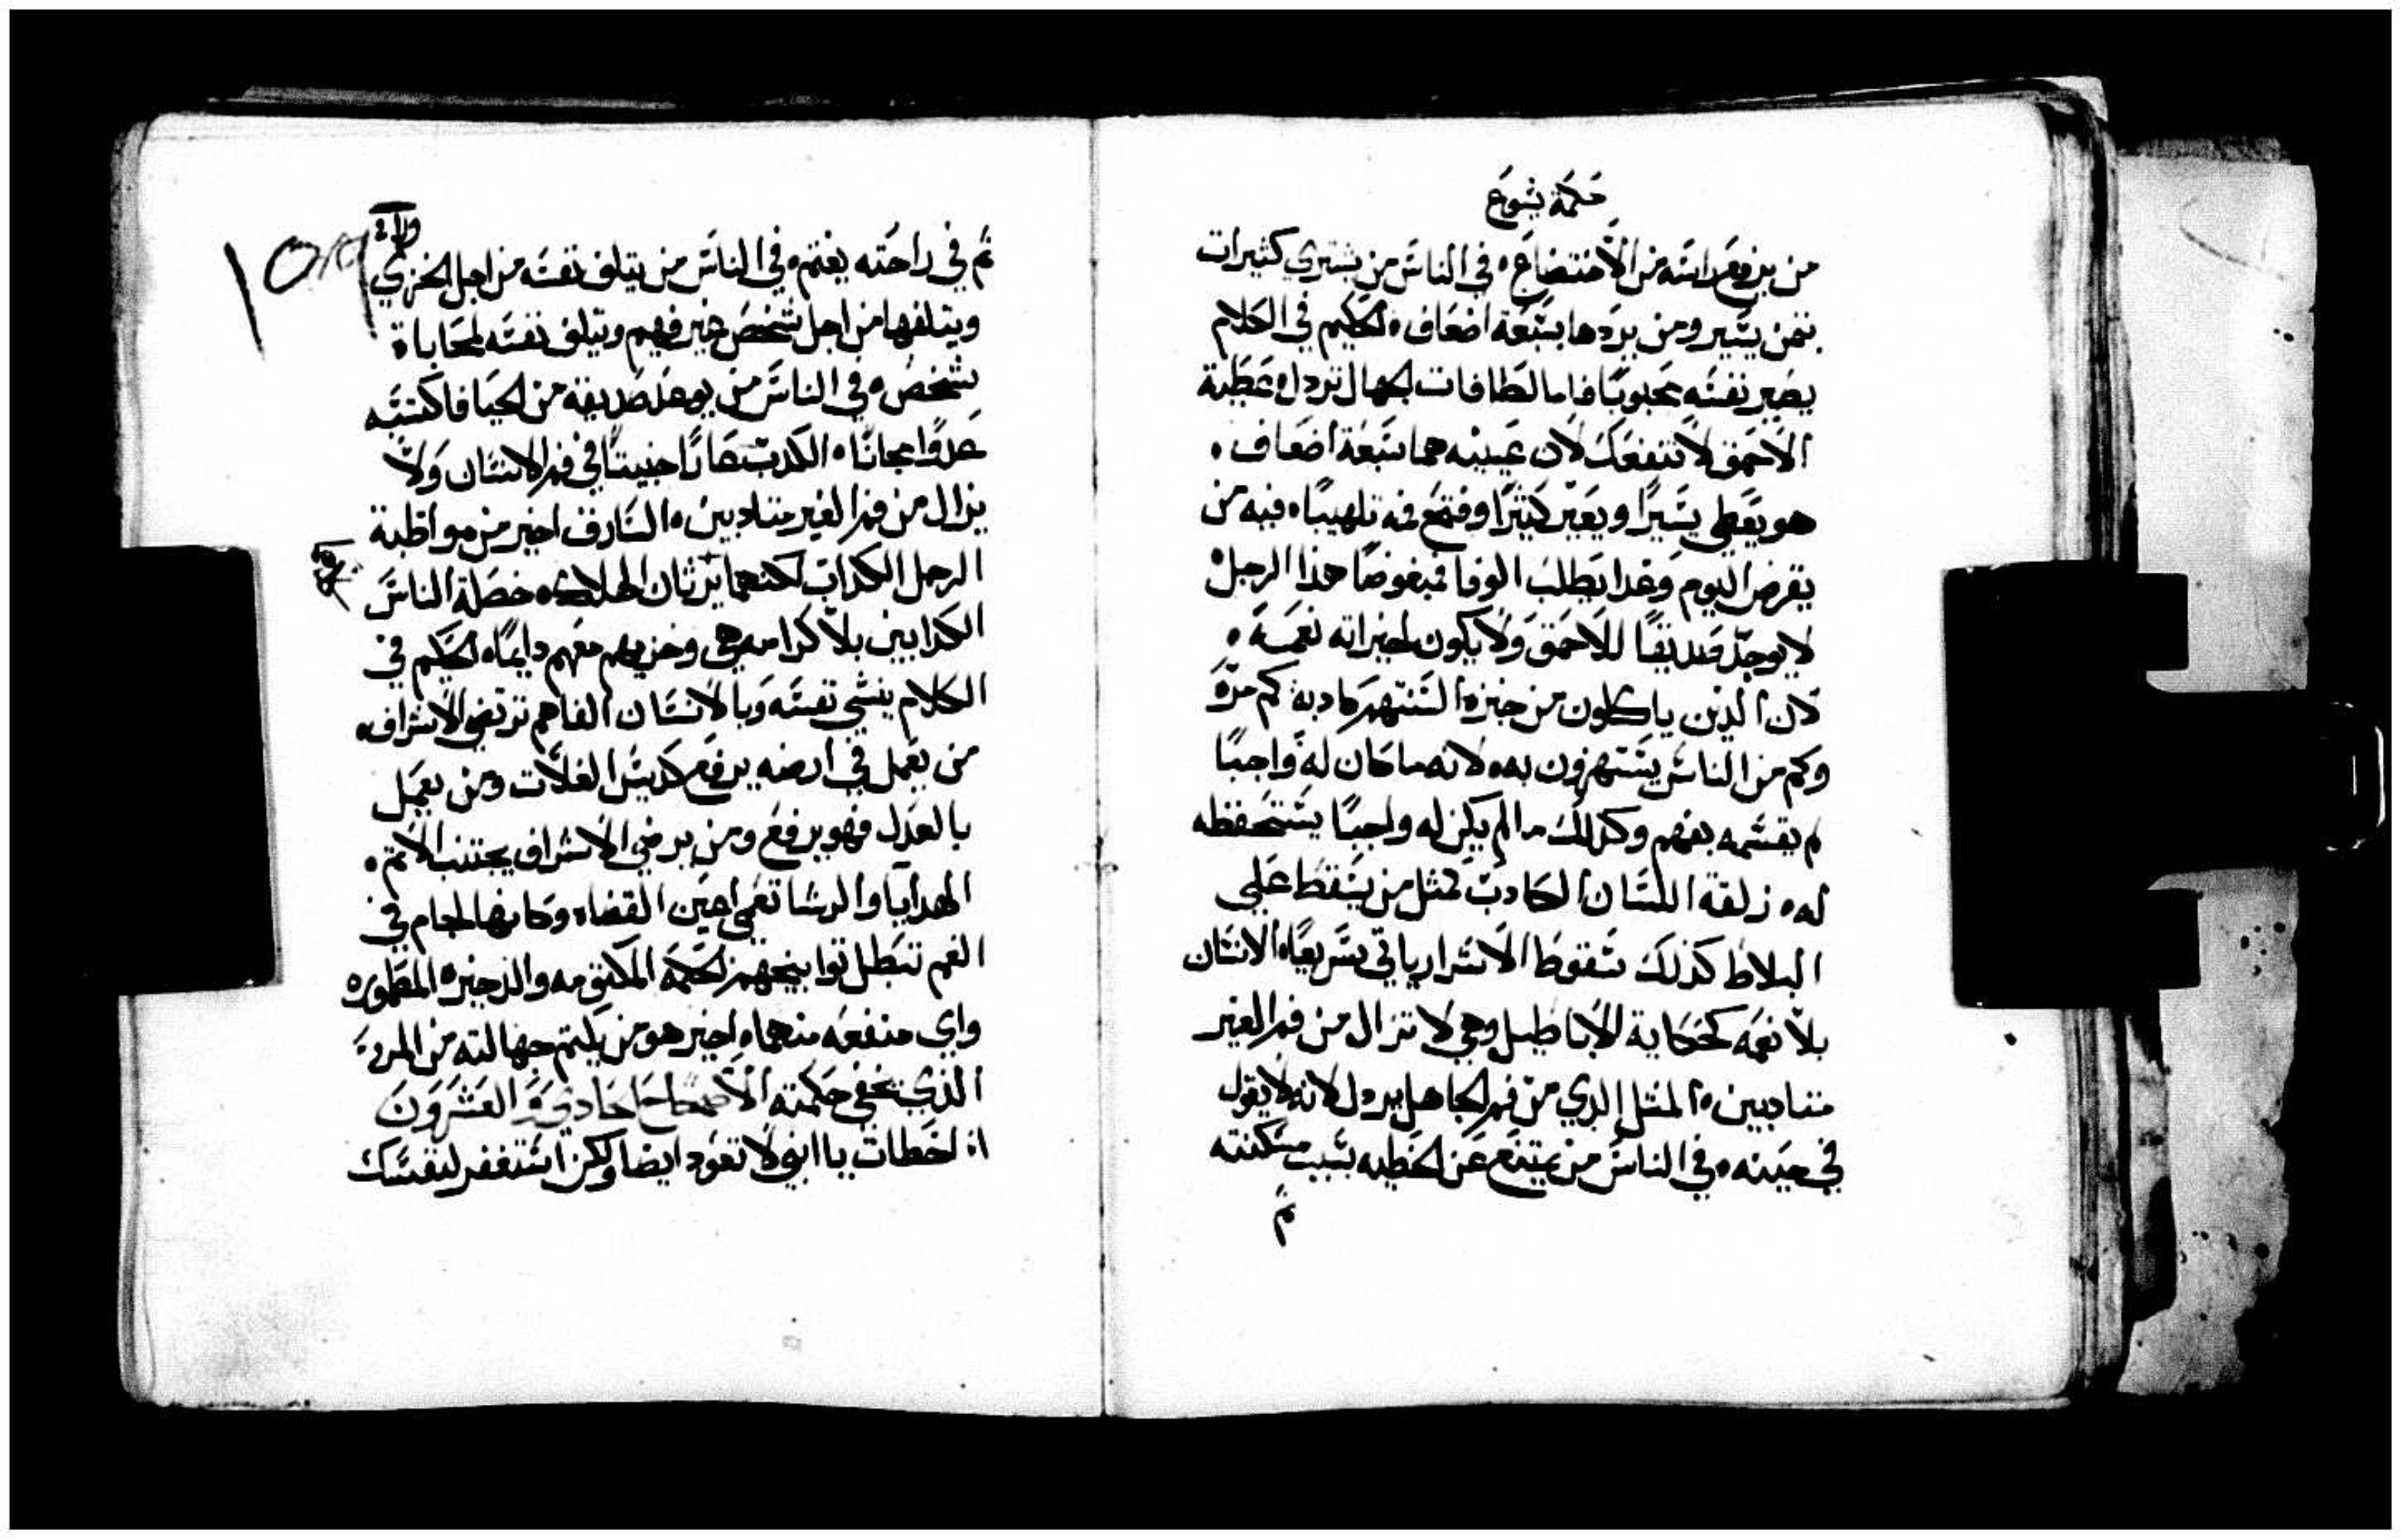 حكمة يشوع
من يرفع راسه من الاختضاع ه في الناس من يشتري كثيرات
بثمن يسير ومن يردها بسبعة اضعاف ه الحكيم في الكلام
يصير نفسه محبوبًا فاما لطافات الجهال تردل ه عطية
الاحمق لا تنفعك لان عينيه هما سبعة اضعاف ه
هو يعطي يسيرًا ويعير كثيرًا وفتح فمه تلهيبًا ه فيه من
يقرض اليوم وغدا يطلب الوفا فبغوضًا هذا الرجل ه
لا يوجد صديقًا للاحمق ولا يكون لخيراته نعمه ه
لان الدين ياكلون من خبزه السنتهم كادبة كم مرة
وكم من الناس يستهزون به ه لانه ما كان له واجبًا
لم يقسمه بفهم وكذلك ما لم يكن له واجبًا يستحفظه
له ه زلقة اللسان الكادب كمثل من يسقط على
البلاط كذلك سقوط الاشرار ياتي سريعًا ه الانسان
بلا نعمه كحكاية الاباطيل وهي لا تزال من فم الغير
متادبين ه المثل الدي من فم الجاهل يردل لانه لا يقول
في حينه ه وفي الناس من يمتنع عن الخطيه بسبب مسكنته
ثم
ثم في راحته يغتم ه في الناس من يتلف نفسه من اجل الخزي
ويتلفها من اجل شخص غير فهيم ويتلف نفسه لمحاباة
شخص ه في الناس من يوعد صديقه من الحيا فاكتسبه
عدوًا مجانًا ه الكدب عارًا خبيتًا في فم الانسان ولا
يزال من فم الغير متادبين ه السارق اخير من مواظبة
الرجل الكداب لكنهما يرثان الهلاك ه خصلة الناس
الكدابين بلا كرامه هي وخزيهم معهم دايمًا ه الحكيم في
الكلام ينشي نفسه وبالانسان الفاهم ترتضي الاشراف ه
من يعمل في ارضه يرفع كديس الغلات ومن يعمل
بالعدل فهو يرفع ومن يرضي الاشراف يجتنب الاثم ه
الهدايا والرشا تعمي اعين القضاه وكانها لجام في
الفم تبطل توابيخهم ه الحكمه المكتومه والذخيره المطموره
واي منفعه منهما ه اخير هو من يكتم جهالته من المرء
الذي يخفي حكمته الاصحاح الحادي والعشرون
اذا اخطات يا ابني لا تعود ايضا ولكن استغفر لنفسك